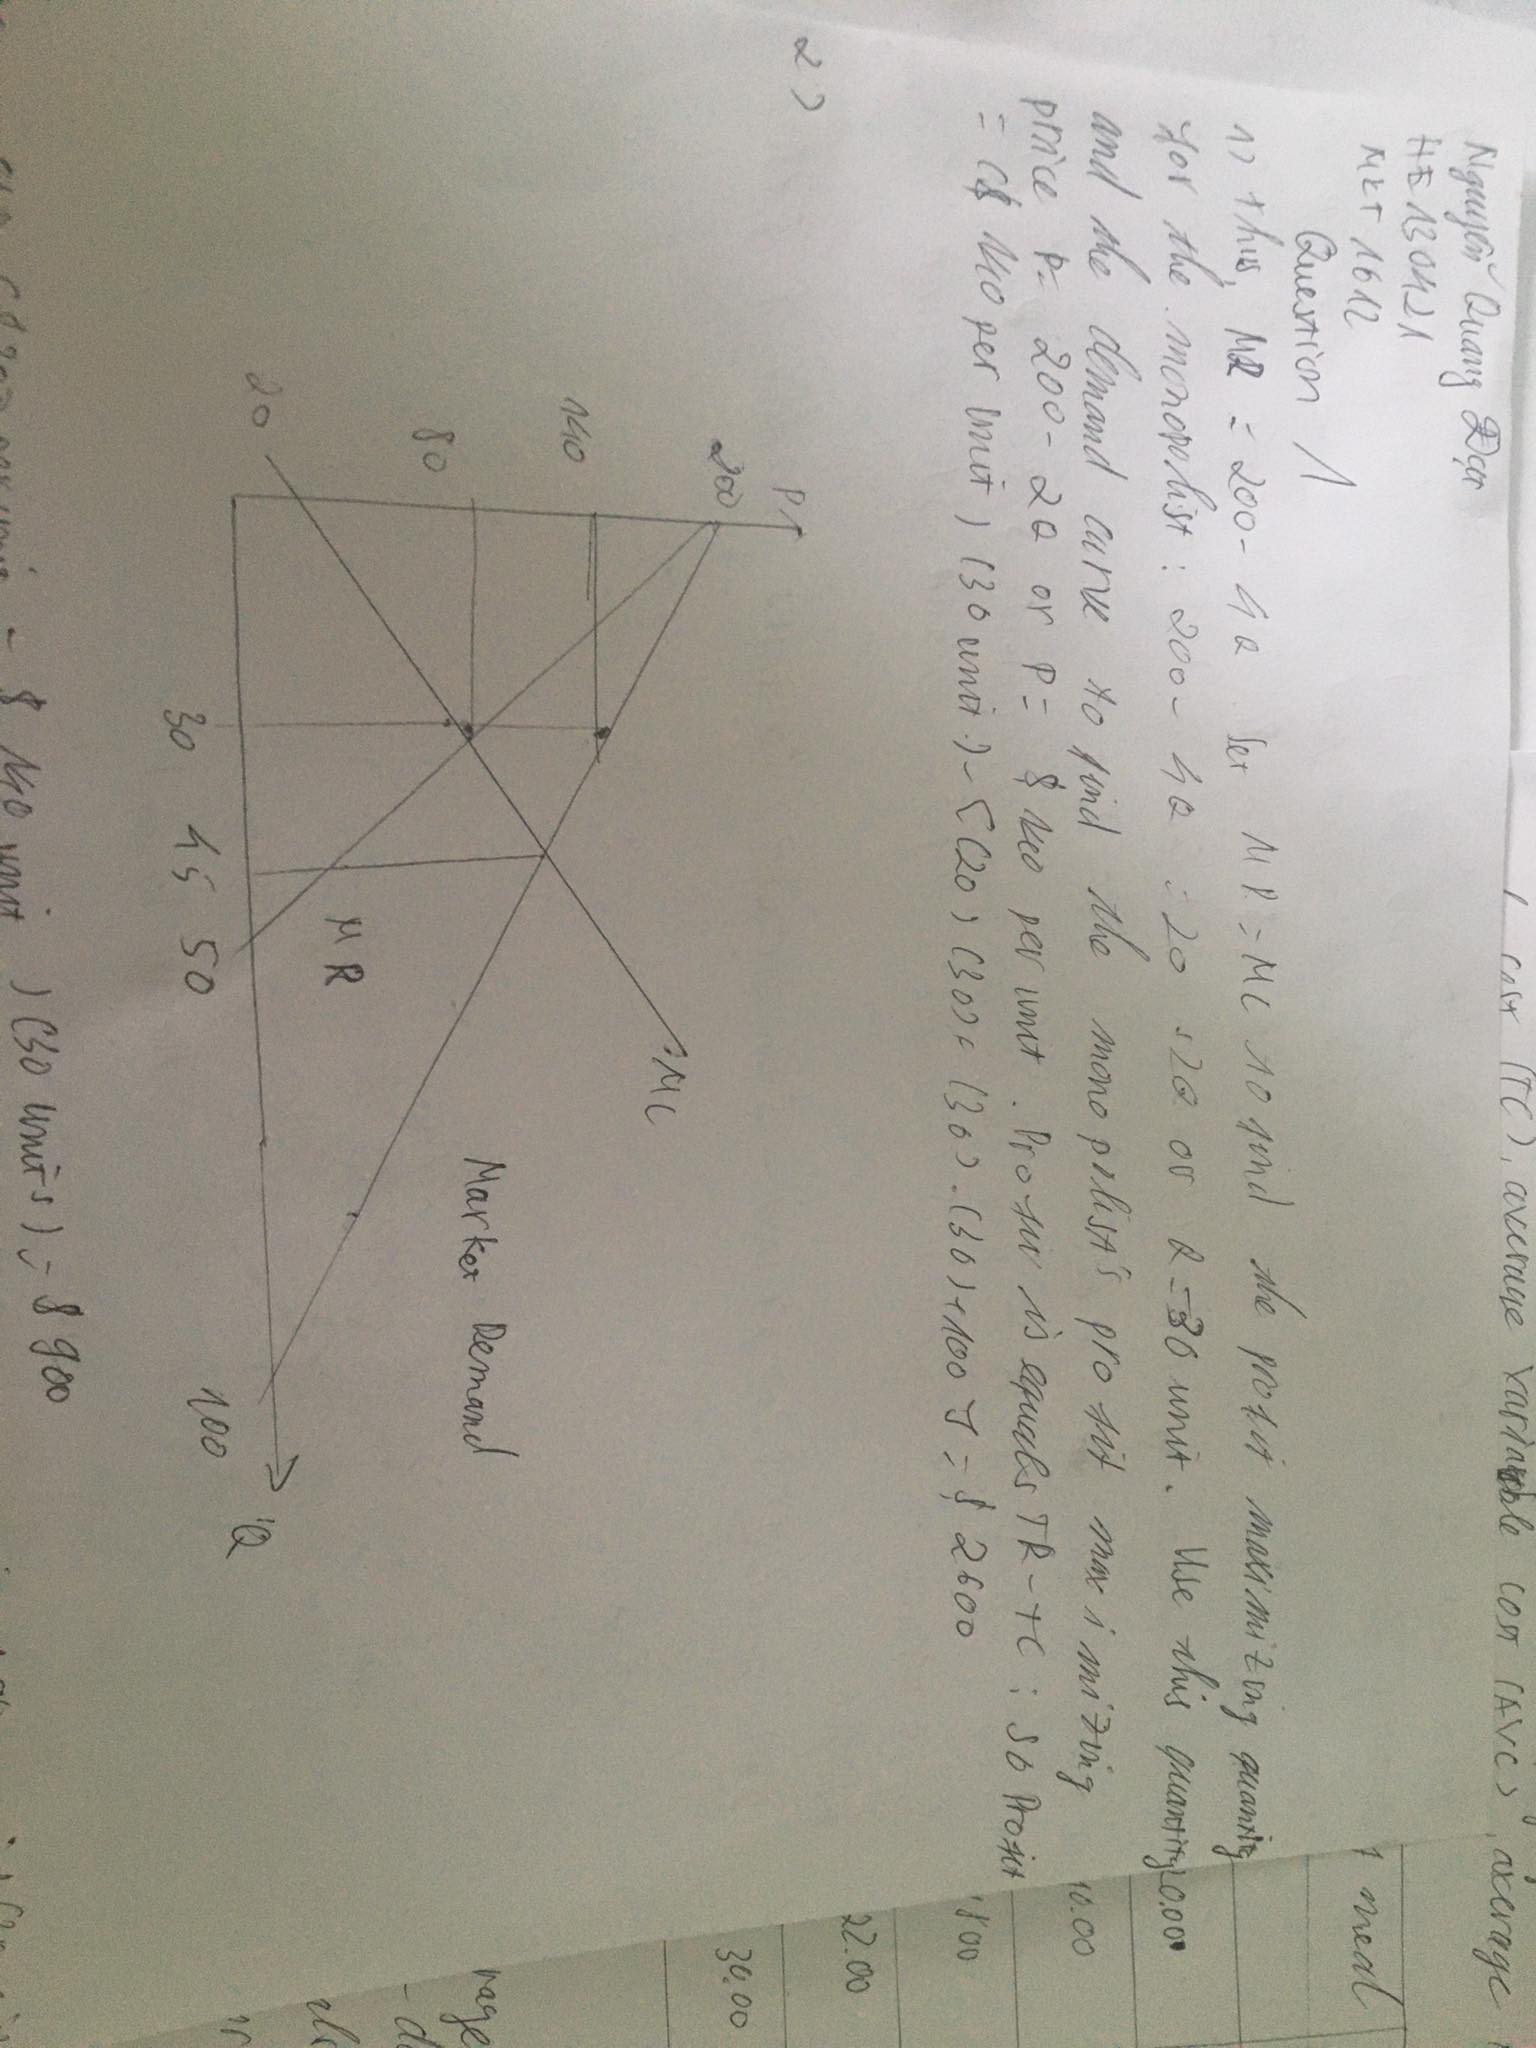 cost (TC), average variable cost (AVC), average
Nguyễn Quang Đạt
HE130421
MKT 1612
Question 1
meal
1) thus, MR = 200 - 4Q Set MR = MC to find the profit maximizing quantity
for the monopolist: 200 - 4Q = 20 + 2Q or Q = 30 unit. Use this quantity
0.00
and the demand curve to find the monopolist's profit maximizing
10.00
price P = 200 - 2Q or P = $ 140 per unit. Profit is equals TR - TC; so Profit
= ($ 140 per unit) (30 unit) - [(20) (30) + (30).(30) + 100] = $ 2600
800
22.00
2)
P
200
30.00
MC
140
Market Demand
rage
80
MR
20
Q
30 45 50 100
- $ 140 unit ) (30 units) = $ 900